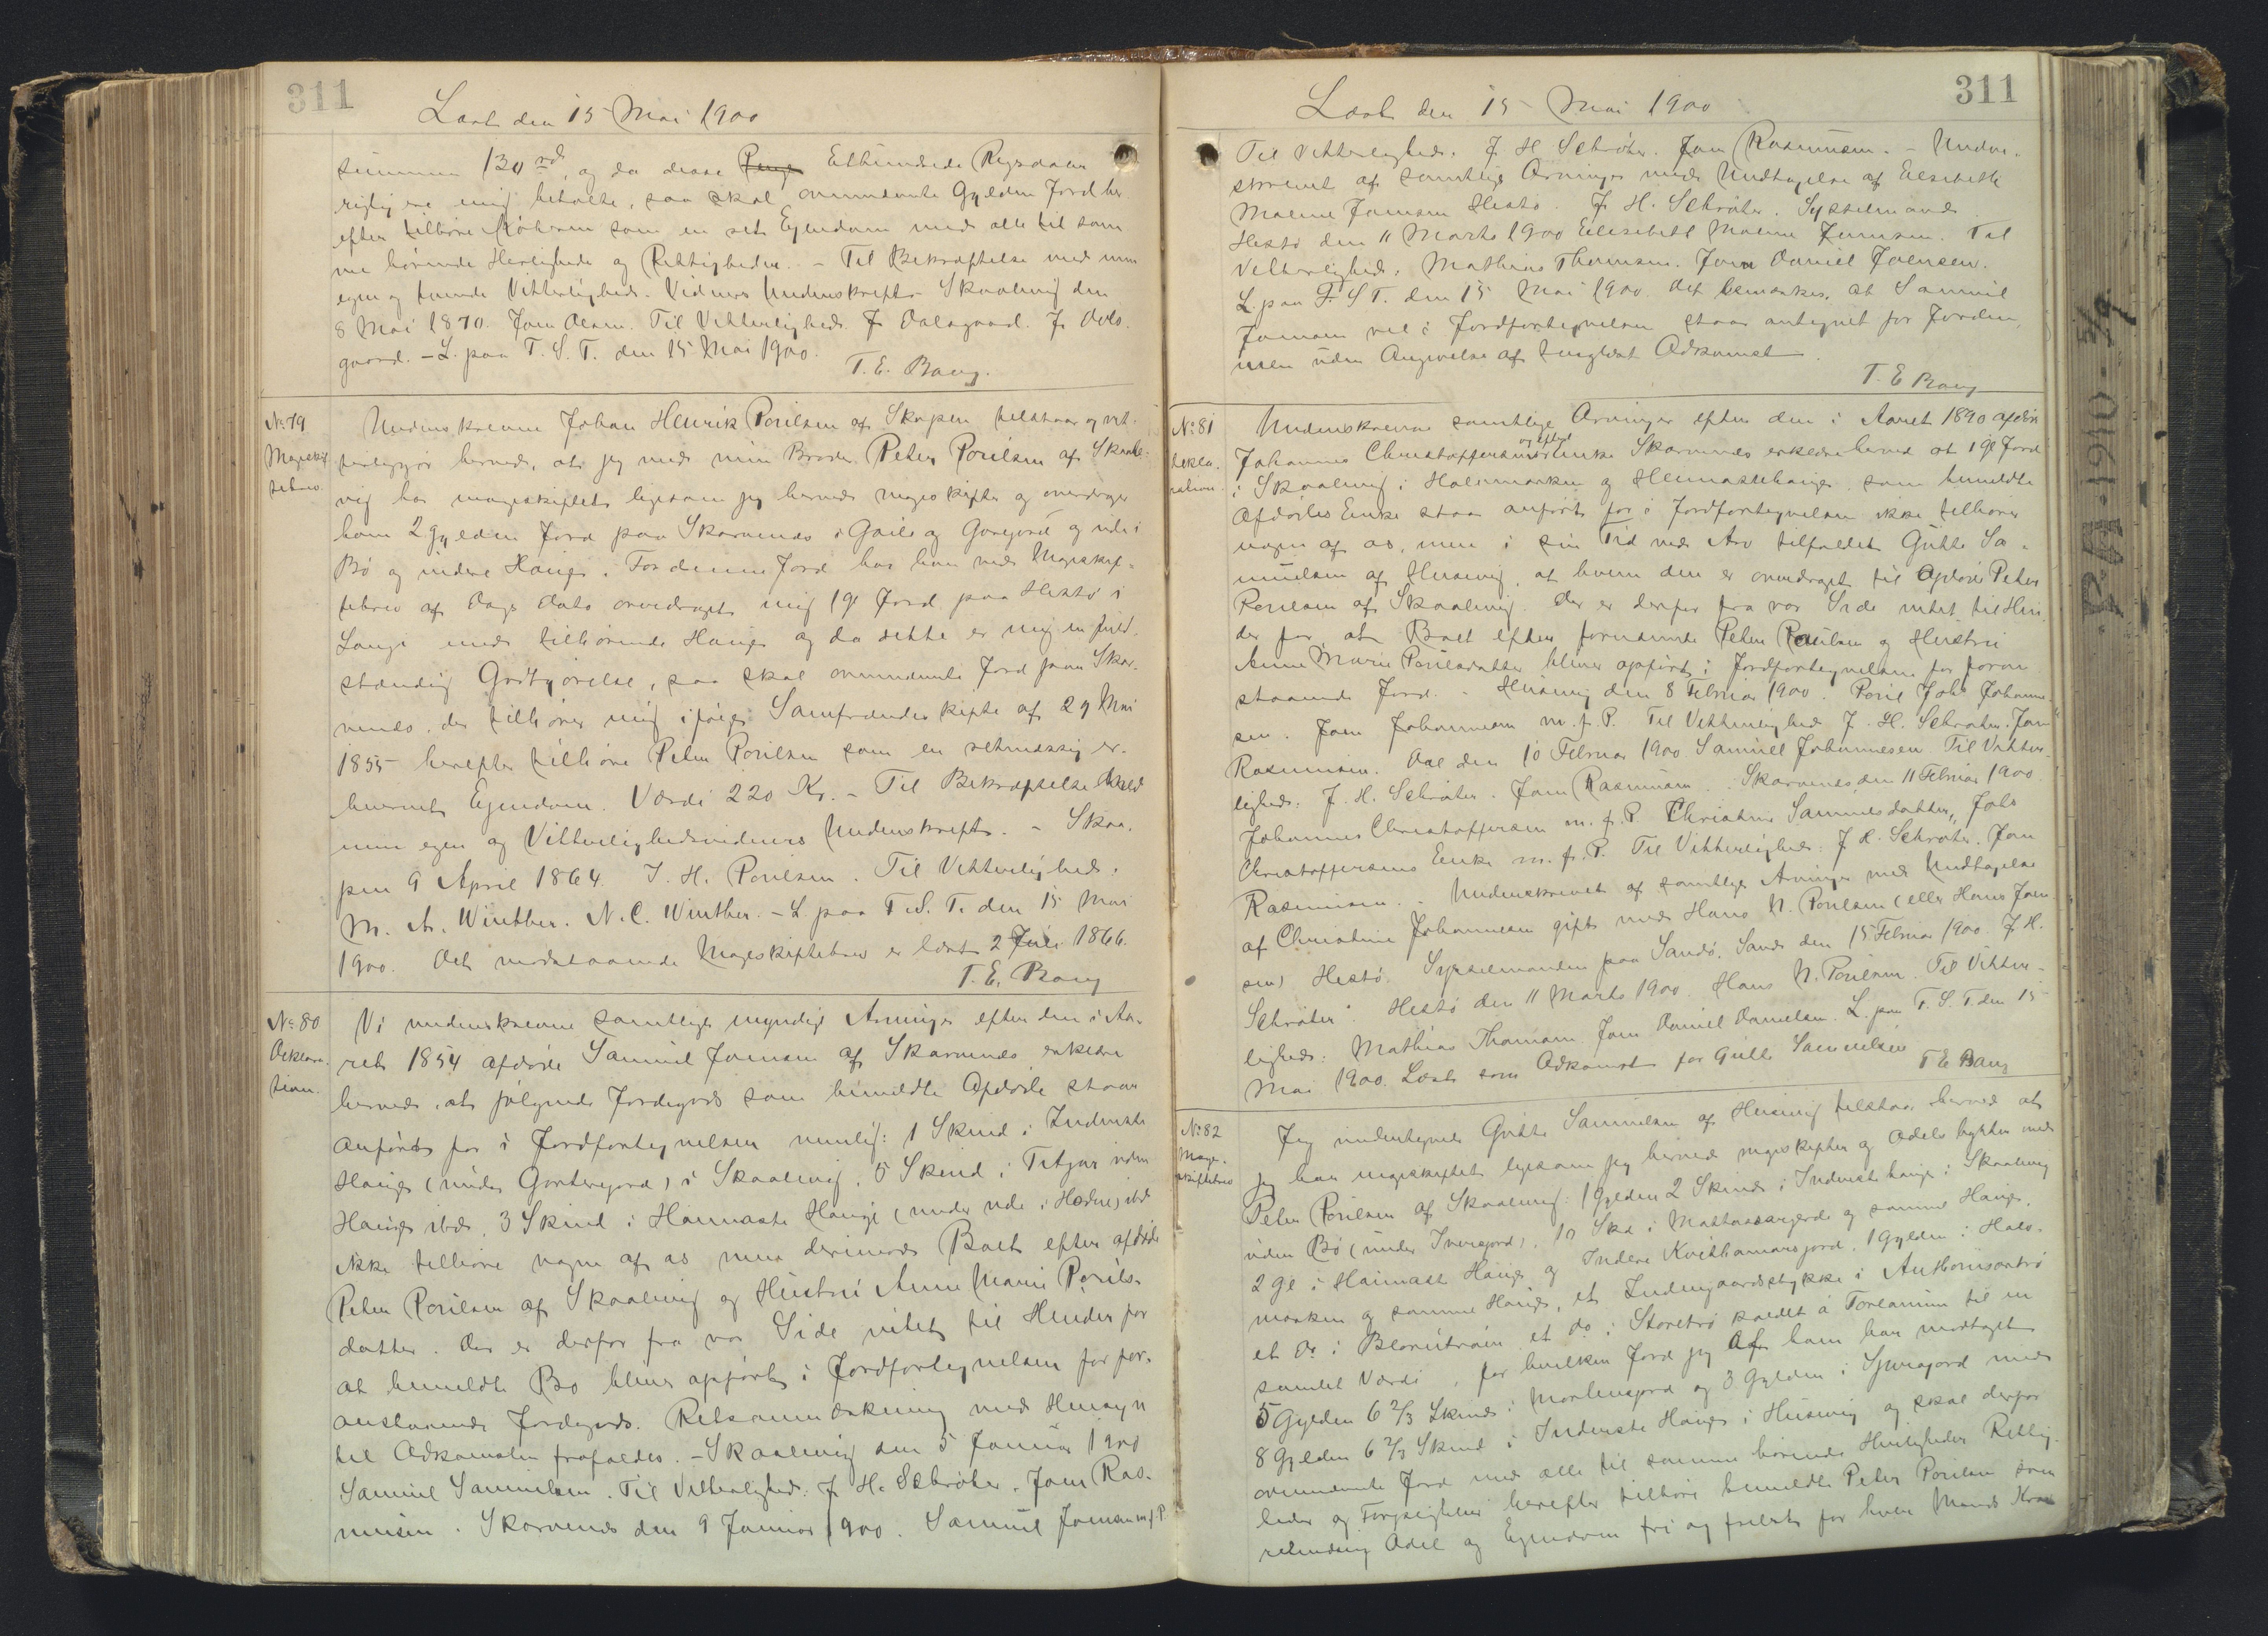 311
Læst den 15 Mai 1900
summen 130 rd, og da disse Penge Ethundrede Rigsdaler
rigtig ere mig betalte, saa skal ovennævnte Gylden Jord her
efter tilhøre Køberen som en ret Ejendom med alle til sam
me hørende Herligheder og Rettigheder. - Til Bekræftelse med min
egen og tvende Vitterligheds-Vidners Underskrift Skaalevig den
8 Mai 1870. Joen Olsen. Til Vitterlighed J. Dalsgaard. J. Dals-
gaard. - L. paa T. S. T. den 15 Mai 1900.
T. E. Bang.
No. 79
Mageskif
tebrev.
Underskrevne Johan Henrik Poulsen af Skopen tilstaar og vit-
terliggjør herved, at jeg med min Broder Peter Poulsen af Skaale-
vig har mageskiftet ligesom jeg herved mageskifter og overdrager
ham 2 Gylden Jord paa Skarvenæs i Gaile og Gorejord og ude i
Bø og indere Hauge. For denne Jord har han ved Mageskif-
tebrev af Dags Dato overdraget mig 1 gl Jord paa Hestø i
Lauge med tilhørende Hauge og da dette er mig en fuld-
stændig Godtgjørelse, saa skal ovennævnte Jord paa Skar-
venæs, der tilhører mig ifølge Samfrændeskifte af 29 Mai
1855 herefter tilhøre Peter Poulsen som en retmæssig er-
hvervet Ejendom. Værdi 220 Kr. - Til Bekræftelse med
min egen og Vitterlighedsvidners Underskrift. - Sko-
pen 9 April 1864. J. H. Poulsen. Til Vitterlighed:
M. A. Winther. N. C. Winther. - L. paa T. S. T. den 15 Mai
1900. Det modstaaende Mageskiftebrev er læst 2 Juli 1866.
T. E. Bang
No. 80
Deklara-
tion.
Vi underskrevne samtlige myndige Arvinger efter den i Aa-
ret 1854 afdøde Samuel Joensen af Skarvenæs erklære
herved, at følgende Jordegods som bemeldte Afdøde staar
anført for i Jordfortegnelsen nemlig: 1 Skind i Inderste
Hauge (under Gorterejord) i Skaalevig, 5 Skind i Teigar uden
Hauge ibd., 3 Skind i Haimaste Hauge (under ude i Hædne) ibd
ikke tilhøre nogen af os men derimod Boet efter afdøde
Peter Poulsen af Skaalevig og Hustru Anne Marie Pouls-
datter. Der er derfor fra vor Side intet til Hinder for
at bemeldte Bo bliver opført i Jordfortegnelsen for for-
anstaaende Jordegods. Retsanmærkning med Hensyn
til Adkomsten frafaldes. - Skaalevig den 5 Januar 1900
Samuel Samuelsen. Til Vitterlighed: J. H. Schrøter. Joen Ras-
mussen. Skarvenæs den 9 Januar 1900. Samuel Joensen m. f. P.
311
Læst den 15 Mai 1900
Til Vitterlighed: J. H. Schrøter. Joen Rasmussen. - Under-
skrevet af samtlige Arvinger med Undtagelse af Elsebeth
Malene Joensen Hestø. J. H. Schrøter. Sysselmand.
Hestø den 11 Marts 1900 Elisebeth Malene Joensen. Til
Vitterlighed: Mathias Thomsen. Joen Daniel Joensen.
L. paa T. S. T. den 15 Mai 1900. Det bemærkes, at Samuel
Joensen vel i Jordfortegnelsen staar antegnet for Jorden,
men uden Angivelse af tinglæst Adkomst.
T. E Bang
No. 81
Dekla-
ration.
Underskrevne samtlige Arvinger efter den i Aaret 1890 afdøde
Johannes Christoffersens og efterl. Enke Skarvenæs erklære herved at 1 gl Jord
i Skaalevig i Halsmarken og Heimastehauge som bemeldte
Afdødes Enke staar anført for i Jordfortegnelsen ikke tilhører
nogen af os, men i sin Tid ved Arv tilfaldet Gutte Sa-
muelsen af Husevig, af hvem den er overdraget til afdøde Peter
Poulsen af Skaalevig. Der er derfor fra vor Side intet til Hin
der for, at Boet efter fornævnte Peter Poulsen og Hustru
Anne Marie Poulsdatter bliver opført i Jordfortegnelsen for foran
staaende Jord. - Husevig den 8 Februar 1900. Poul Johs Johanne
sen. Joen Johannesen m. f. P. Til Vitterlighed J. H. Schrøter. Joen
Rasmussen. Dal den 10 Februar 1900 Samuel Johannesen. Til Vitter
lighed: J. H. Schrøter. Joen Rasmussen. Skarvenæs, den 11 Februar 1900.
Johannes Christoffersen m. f. P. Christine Samuelsdatter, Johs
Christoffersens Enke m. f. P. Til Vitterlighed: J. H. Schrøter. Joen
Rasmussen. - Underskrevet af samtlige Arvinger med Undtagelse
af Christine Johannesen gift med Hans N. Poulsen (eller Hans Joen
sen) Hestø. Sysselmanden paa Sandø. Sand den 15 Februar 1900. J. H.
Schrøter. Hestø den 11 Marts 1900. Hans N. Poulsen. Til Vitter-
lighed: Mathias Thomsen. Joen Daniel Danielsen. L. paa T. S. T. den 15
Mai 1900. Læst som Adkomst for Gutte Samuelsen
T E Bang
No. 82
Mage-
skiftebrev
Jeg undertegnede Gutte Samuelsen af Husevig tilstaar herved at
jeg har mageskiftet ligesom jeg herved mageskifter og Odelsbytter med
Peter Poulsen af Skaalevig: 1 Gylden 2 Skind i Inderste hauge i Skaalevig
uden Bø (under Inverjord), 10 Skd i Mattassargerde og samme Hauge,
2 gl i Haimast Hauge og Indere Kvithamarsjord, 1 Gylden i Hals-
marken og samme Hauge, et Indengaardsstykke i
et do i et do i Storetrø kaldet á til en
samlet Værdi , for hvilken Jord jeg af ham har modtaget
5 Gylden 6 2/3 Skind i Mortensjord og 3 Gylden i med
8 Gylden 6 2/3 Skind i Inderste Hauge i Husevig og skal derfor
ovennævnte Jord med alle til samme hørende Herligheder Rettig-
heder og herefter tilhøre bemeldte Peter Poulsen som
retmæssig Odel og Ejendom fri og frelst for hver Mands Krav
RA-1910-5/9